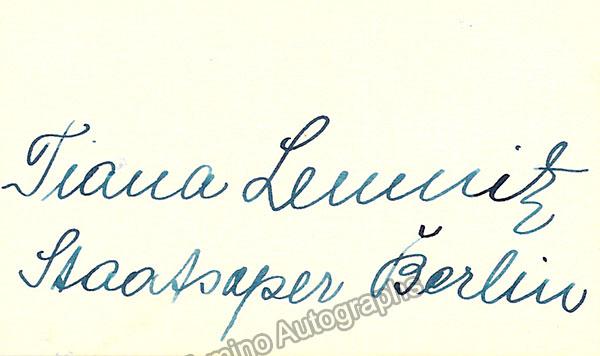 Tiana Lemnitz
Staatsoper Berlin
Tamino Autographs